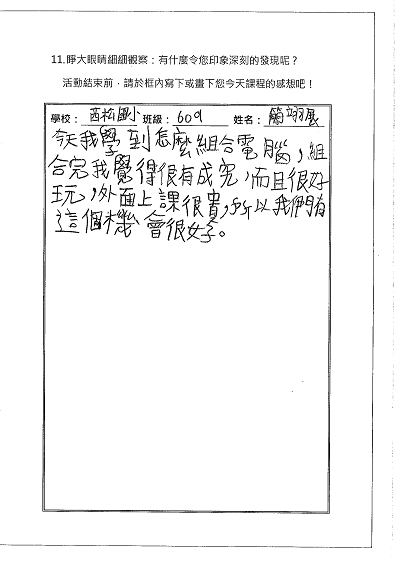 11.睜大眼睛細細觀察：有什麼令您印象深刻的發現呢？
活動結束前，請於框內寫下或畫下您今天課程的感想吧！
學校：西松國小 班級：609 姓名：簡翊展
今天我學到怎麼組合電腦，組
合完我覺得很有成究，而且很好
玩，外面上課很貴，所以我們有
這個機會很好。